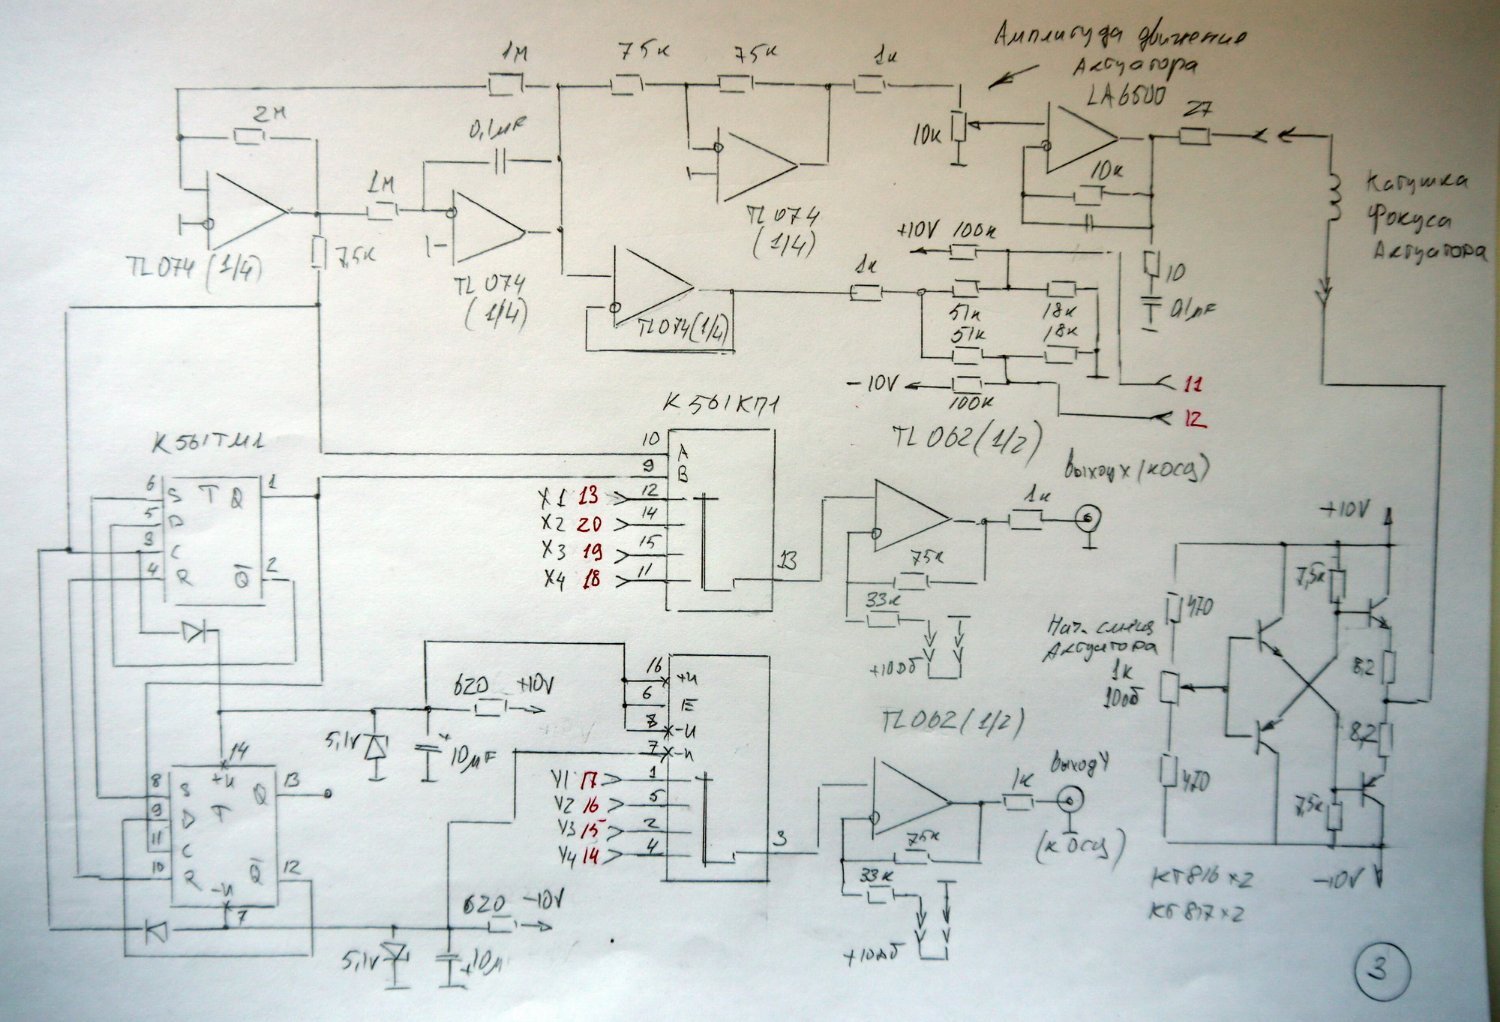 Амплитуда движения
Актуатора
LA6500
1M
75к
75к
1к
2M
0,1μF
10к
27
10к
1M
TL074 (1/4)
7,5к
TL074
(1/4)
TL074
(1/4)
TL074(1/4)
Катушка
Фокуса
Актуатора
+10V
100к
1к
51к
18к
51к
18к
-10V
100к
10
0,1μF
11
12
К561КП1
К561ТМ1
10
A
9
B
X1 13
12
X2 20
14
X3 19
15
X4 18
11
13
6
S
T
Q
1
5
D
3
C
4
R
Q
2
TL062(1/2)
Выход X (к осц)
1к
75к
33к
+10дб
620
+10V
5,1V
+
10μF
16
+U
6
E
8
-U
7
-U
Y1 17
1
Y2 16
5
Y3 15
2
Y4 14
4
3
14
+U
8
S
T
Q
13
9
D
11
C
10
R
Q
12
-U
7
620
-10V
5,1V
+10μ
TL062(1/2)
Выход Y
1к
(к осц)
75к
33к
+10дб
+10V
470
7,5к
Нач. смещ
Актуатора
1к
10об
8,2
8,2
470
7,5к
-10V
КТ816×2
КТ817×2
3